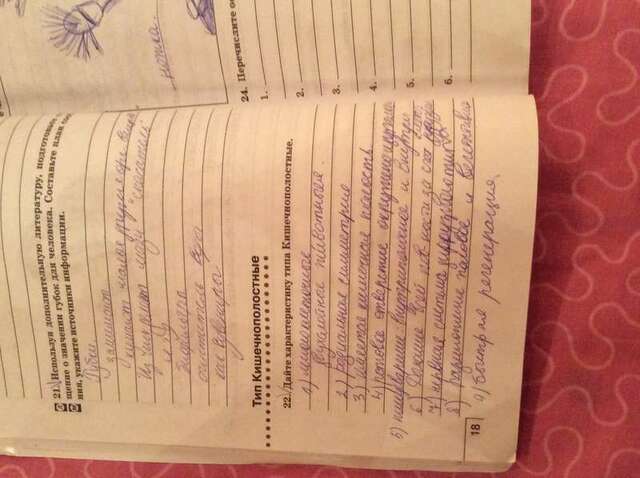 21. Используя дополнительную литературу, подготовьте
щение о значении губок для человека. Составьте план
ния, укажите источники информации.
Губки.
Из них делают мазь
биофильтры
очиститель воды
как сувениры
Тип Кишечнополостные
22. Дайте характеристику типа Кишечнополостные.
1) многоклеточные
двухслойные животные.
2) радиальная симметрия
3) имеется кишечная полость
4) ротовое отверстие окружено
5) пищеварение внутриполостное и внутри
6) Дыхание всей пов-ности за счёт
7) нервная система диффузного типа
8) размножение половое и вегетативное
9) быстрая регенерация
18
ножка.
24. Перечислите
1.
2.
3.
4.
5.
6.